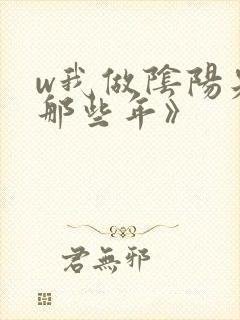 w我做陰陽
那些年》
君無邪